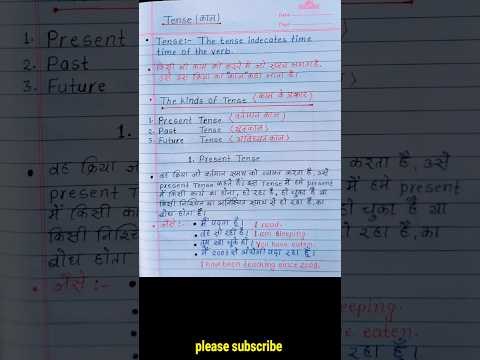 Tense (काल)
Date
Tense:- The tense indecates time
time of the verb.
किसी भी काम को करने में जो समय लगता है,
उसे उस क्रिया का काल कहा जाता है।
The kinds of Tense (काल के प्रकार)
1. Present Tense (वर्तमान काल)
2. Past Tense (भूतकाल)
3. Future Tense (भविष्यत काल)
1. Present Tense
वह क्रिया जो वर्तमान समय को व्यक्त करता है, उसे
present Tense कहते हैं। इस Tense में हमे present
में किसी कार्य का होना, हो रहा है, हो चुका है या
किसी निश्चित या अनिश्चित समय से हो रहा है, का
बोध होता है।
जैसे:- मैं पढ़ता हूँ। I read.
वह सो रहा है। I am sleeping.
तुम खा चुके हो। You have eaten.
मैं 2003 से अंग्रेजी पढ़ा रहा हूँ।
I have been teaching since 2003.
1. Present
2. Past
3. Future
1.
वह क्रिया जो
present T
में किसी का
किसी निश्चि
बोध होता
जैसे:-
करता है, उसे
present
चुका है या
रहा है, का
eeping.
eaten.
रहा हूँ।
please subscribe